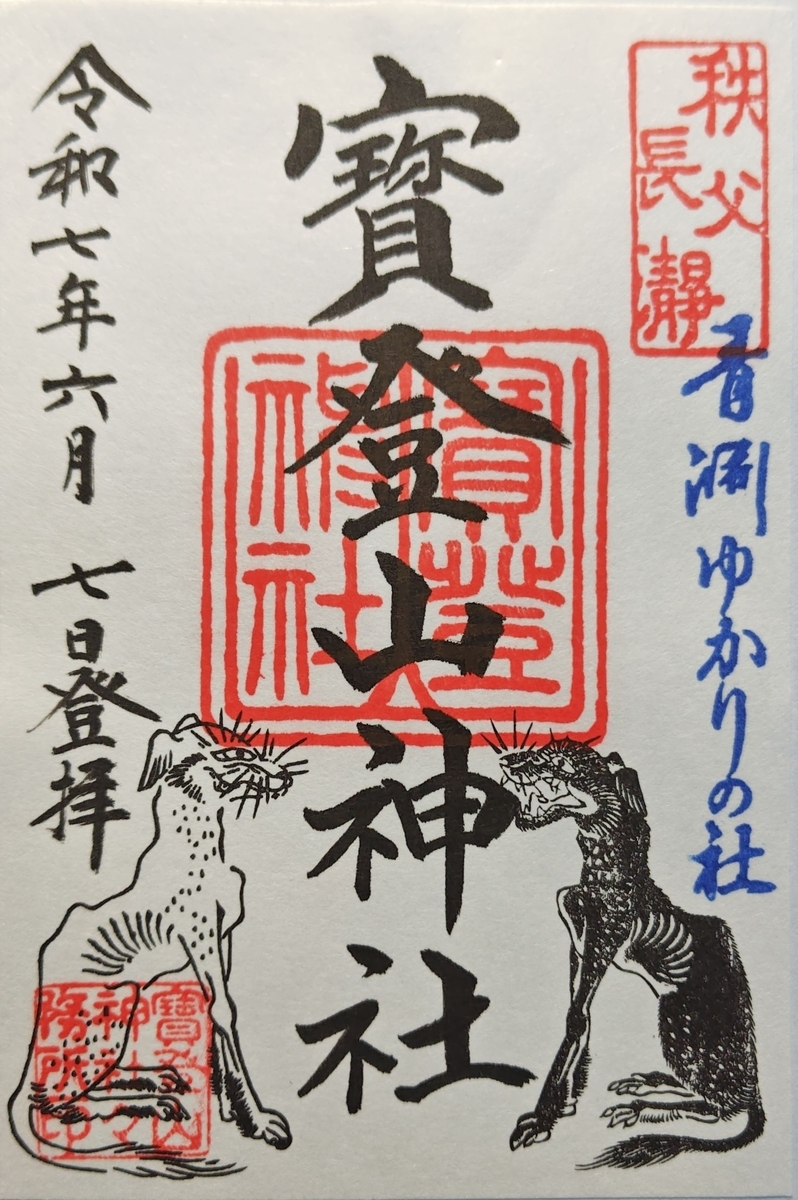 秩父
長瀞
青淵ゆかりの社
寶登山神社
寶登山
神社
令和七年六月七日登拝
寶登山
神社之
務所印